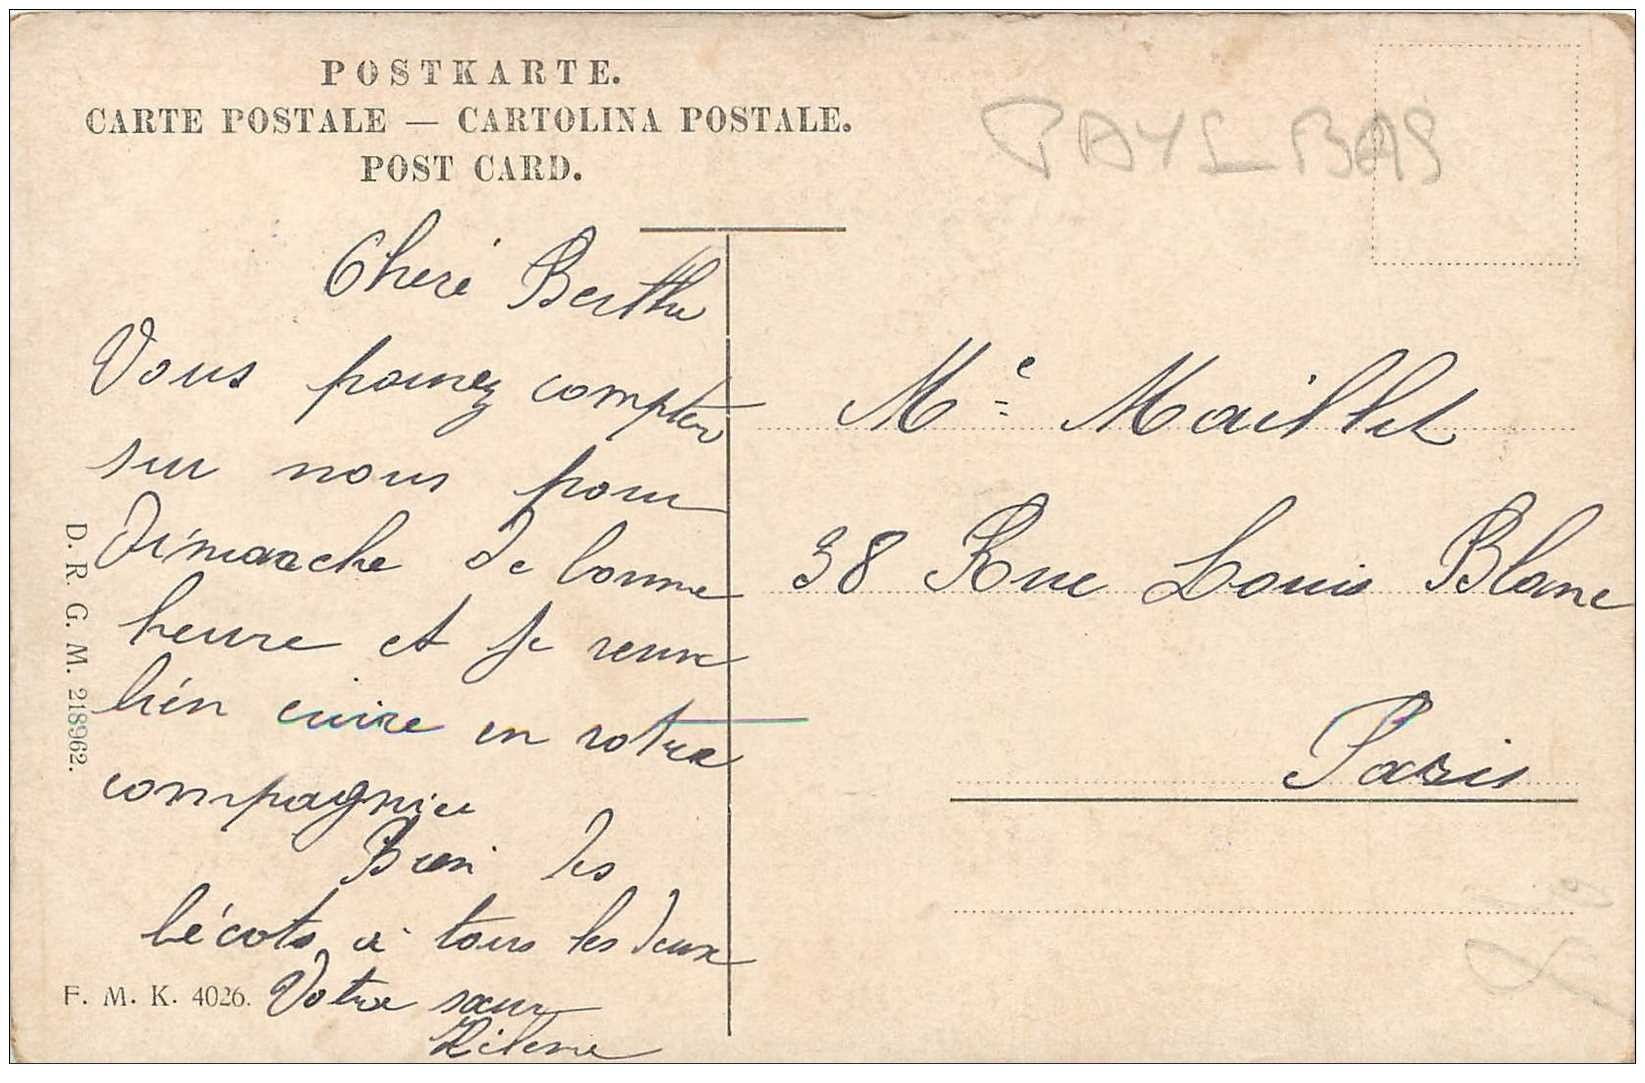 POSTKARTE.
CARTE POSTALE — CARTOLINA POSTALE.
POST CARD.
PAYS BAS
Cheré Berthe
Vous pouvez compter
sur nous pour
Dimanche de bonne
heure et je veux
bien cuire en votre
compagnie
Bien des
bécots à tous les deux
Votre sœur
Hélène
Me = Maillet
38 Rue Louis Blanc
Paris
D. R. G. M. 218962.
F. M. K. 4026.